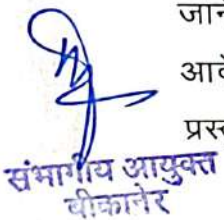 जान
आवे
प्रस
संभागीय आयुक्त
बीकानेर